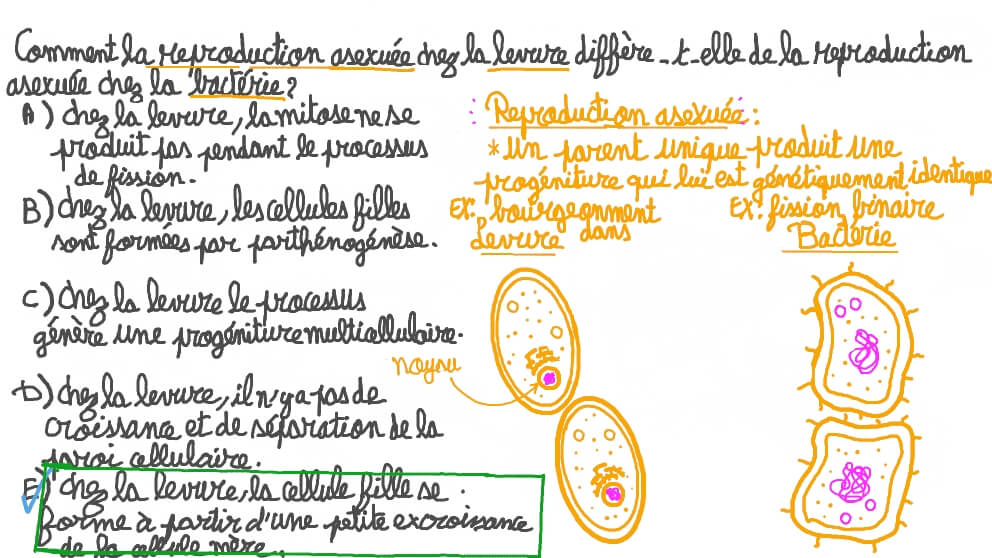 Comment la reproduction asexuée chez la levure diffère-t-elle de la reproduction
asexuée chez la bactérie?
A) chez la levure, la mitose ne se
produit pas pendant le processus
de fission.
B) chez la levure, les cellules filles
sont formées par parthénogénèse.
C) chez la levure le processus
génère une progéniture multicellulaire.
D) chez la levure, il n'y a pas de
croissance et de séparation de la
paroi cellulaire.
E) chez la levure, la cellule fille se
forme à partir d'une petite excroissance
de la cellule mère.
Reproduction asexuée:
* Un parent unique produit une
progéniture qui lui est génétiquement identique
EX: bourgeonment dans
Levure
EX: fission binaire
Bactérie
noyau